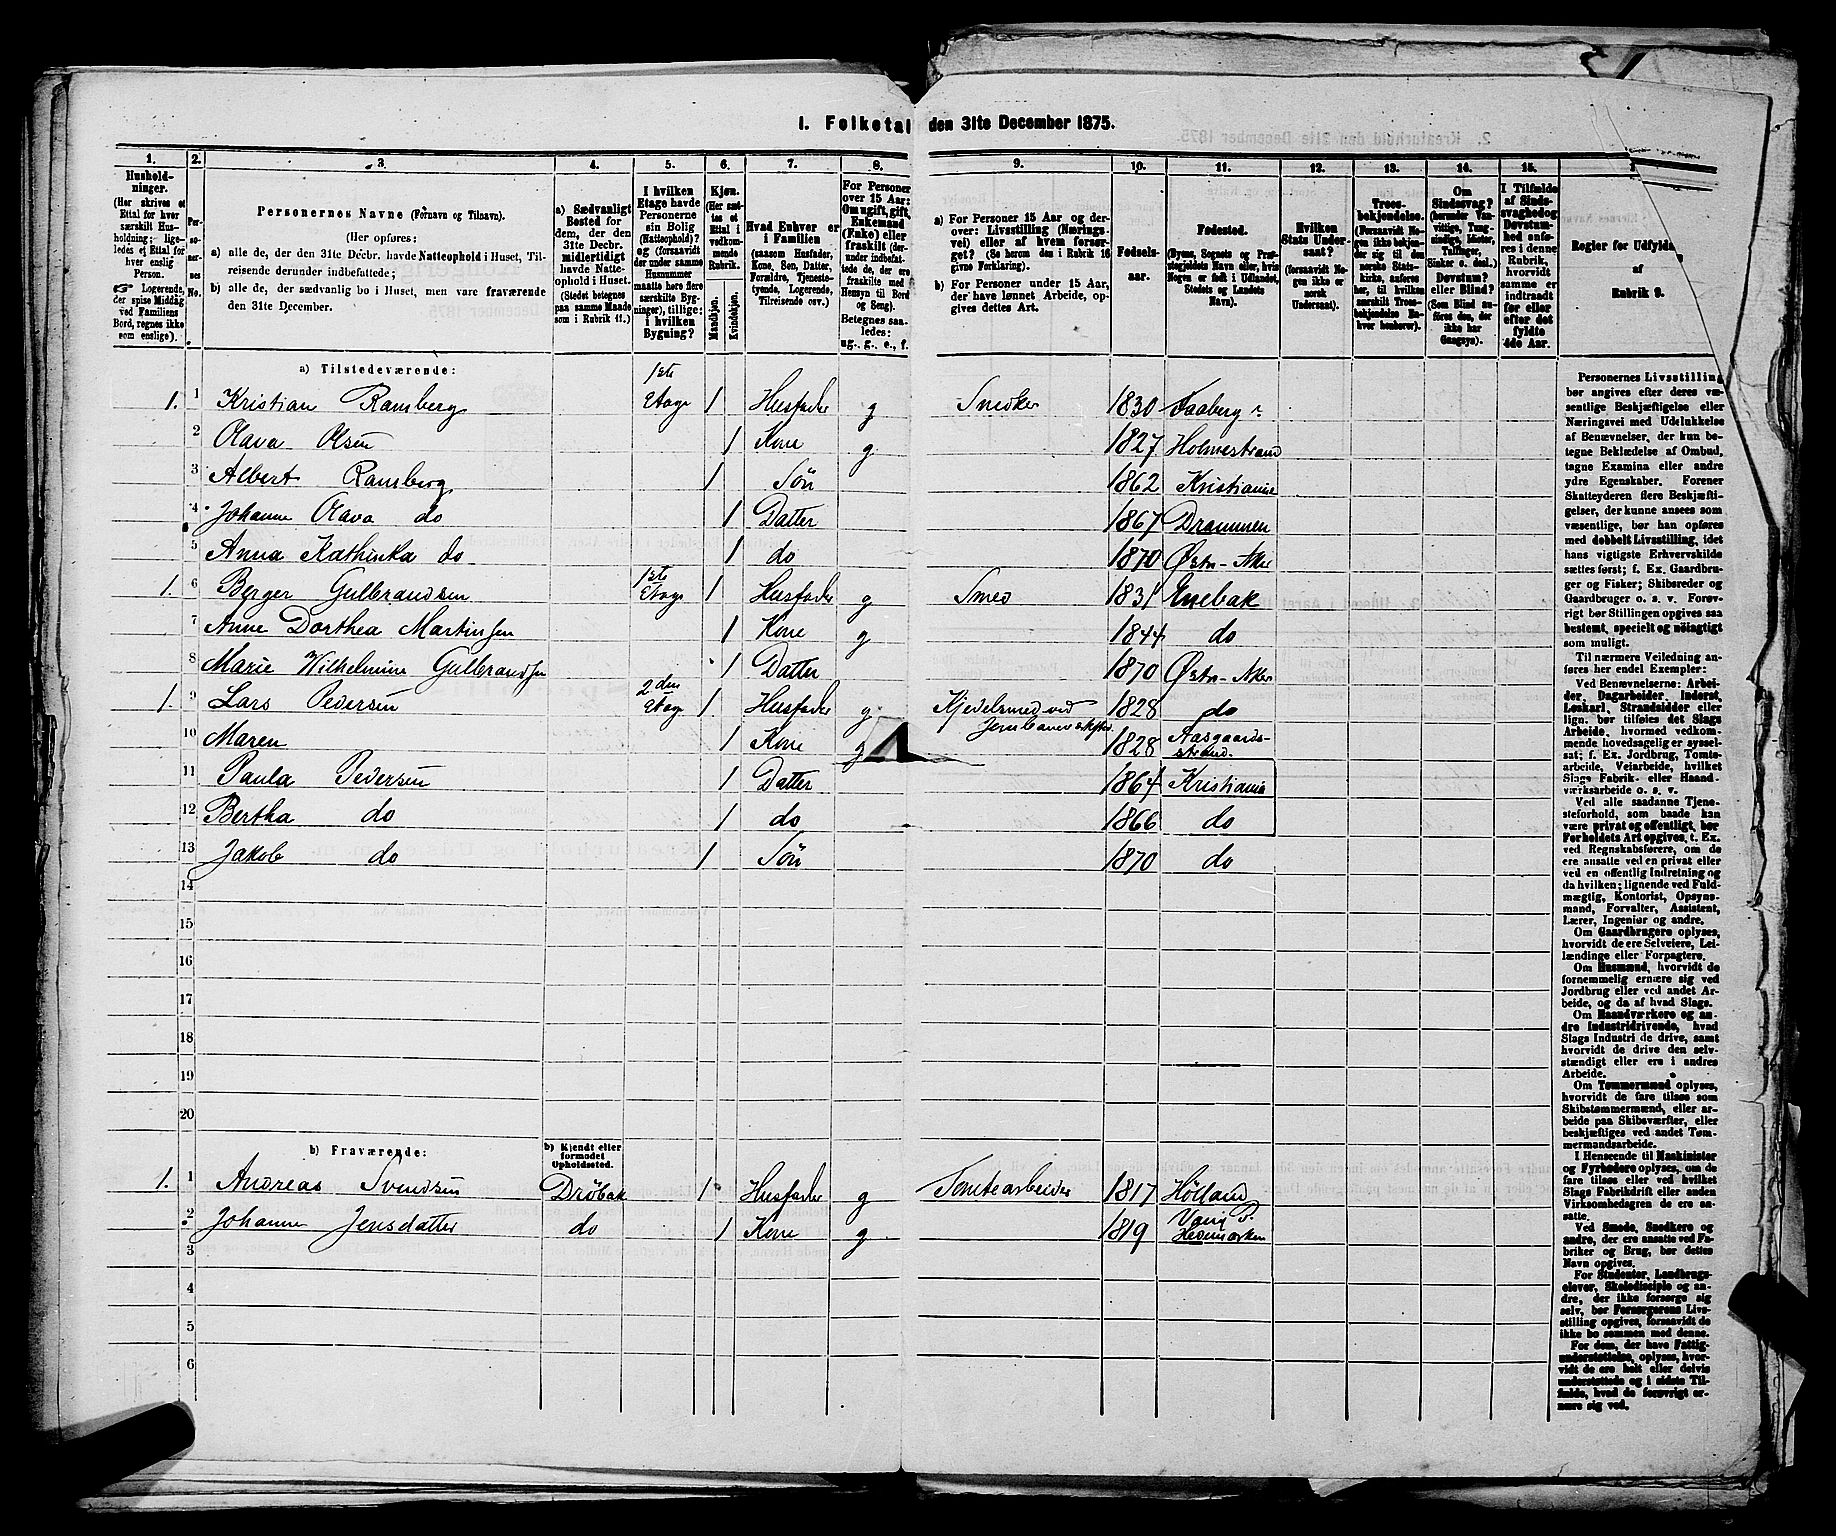 1. Folketal den 31te December 1875.
1. 2. 3. 4. 5. 6. 7. 8. 9. 10. 11. 12. 13. 14. 15.
Hushold-
ninger.
(Her skrives et
Ettal for hver
særskilt Hus-
holdning; lige-
ledes et Ettal for
hver enslig
Person.
☞ Logerende,
der spise Middag
ved Familiens
Bord, regnes ikke
som enslige).
Per-
so-
ner-
nes
No.
Personernes Navne (Fornavn og Tilnavn).
(Her opføres:
a) alle de, der den 31te Decbr. havde Natteophold i Huset, Til-
reisende derunder indbefattede;
b) alle de, der sædvanlig bo i Huset, men vare fraværende
den 31te December.
a) Sædvanligt
Bosted for
dem, der den
31te Decbr.
midlertidigt
havde Natte-
ophold i Huset.
(Stedet betegnes
paa samme Maade
som i Rubrik 11.)
I hvilken
Etage havde
Personerne
sin Bolig
(Natteophold)?
og (forsaavidt
der under samme
Husnummer
maatte høre flere
særskilte Byg-
ninger), tillige:
i hvilken
Bygning?
Kjøn.
(Her sæt-
tes et
Ettal i
vedkom-
mende
Rubrik.
Mandkjøn.
Kvindekjøn.
Hvad Enhver er
i Familien
(saasom Husfader,
Kone, Søn, Datter,
Forældre, Tjeneste-
tyende, Logerende,
Tilreisende osv.)
For Personer
over 15 Aar:
Om ugift, gift,
Enkemand
(Enke) eller
fraskilt (der-
under indbefat-
tede de, der ere
fraskilte med
Hensyn til Bord
og Seng).
Betegnes saa-
ledes:
ug., g., e., f.
a) For Personer 15 Aar og der-
over: Livsstilling (Nærings-
vei) eller af hvem forsør-
get? (Se herom den i Rubrik 16
givne Forklaring).
b) For Personer under 15 Aar,
der have lønnet Arbeide, op-
gives dettes Art.
Fødsels-
aar.
Fødested.
(Byens, Sognets og Præ-
stegjeldets Navn eller, hvis
Nogen er født i Udlandet,
Stedets og Landets
Navn).
Hvilken
Stats Under-
saat?
(forsaavidt No-
gen ikke er
norsk
Undersaat).
Troes-
bekjendelse.
(Forsaavidt No-
gen ikke bekjen-
der sig til den
norske Stats-
kirke, anføres
her, til hvilken
særskilt Troes-
bekjendelse En-
hver henhører).
Om
Sindssvag?
(herunder Van-
vittige, Tung-
sindige, Idioter,
Tullinger,
Sinker o. desl.)
Døvstum?
eller Blind?
(Som Blind an-
føres den, der
ikke har
Gangsyn).
I Tilfælde
af Sinds-
svaghed og
Døvstum-
hed anfø-
res i denne
Rubrik,
hvorvidt
samme er
indtraadt
før eller
efter det
fyldte
4de Aar.
Regler for Udfyldn
af
Rubrik 9.
a) Tilstedeværende:
1. 1 Kristian Ramberg 1ste Etage 1 Husfader g Snedker 1830 Faaberg
2 Olava Olsen 1 Kone g 1827 Holmestrand
3 Albert Ramberg 1 Søn 1862 Kristiania
4 Johanne Olava do 1 Datter 1867 Drammen
5 Anna Kathinka do 1 do 1870 Østr-Aker
1. 6 Berger Gulbrandsen 1ste Etage 1 Husfader g Smed 1831 Enebak
7 Anne Dorthea Martinsen 1 Kone g 1844 do
8 Marie Wilhelmine Gulbrandsen 1 Datter 1870 Østr-Aker
1. 9 Lars Pedersen 2den Etage 1 Husfader g Kjedelsmed ved 1828 do
10 Maren 1 Kone g 1828 Aasgaards-
strand.
11 Paula Pedersen 1 Datter 1864 Kristiania
12 Bertha do 1 do 1866 do
13 Jakob do 1 Søn 1870 do
14
15
16
17
18
19
20
b) Fraværende:
b) Kjendt eller
formodet
Opholdssted.
1. 1 Andreas Svendsen Drøbak 1 Husfader g Tomtearbeider 1817 Hølland
2 Johanne Jensdatter do 1 Kone g 1819 Vang P.
Hedmarken
3
4
5
6
Personernes Livsstilling
bør angives efter deres væ-
sentlige Beskjæftigelse eller
Næringsvei med Udelukkelse
af Benævnelser, der kun be-
tegne Beklædelse af Ombud,
tagne Examina eller andre
ydre Egenskaber. Forener
Skatteyderen flere Beskjæfti-
gelser, der kunne ansees som
væsentlige, bør han opføres
med dobbelt Livsstilling, idet
hans vigtigste Erhvervskilde
sættes først; f. Ex. Gaardbru-
ger og Fisker; Skibsreder og
Gaardbruger o. s. v. Forøv-
rigt bør Stillingen opgives saa
bestemt, specielt og nøiagtigt
som muligt.
Til nærmere Veiledning an-
føres her endel Exempler:
Ved Benævnelserne: Arbei-
der, Dagarbeider, Inderst,
Løskarl, Strandsidder eller
lign. bør tilføies det Slags
Arbeide, hvormed vedkom-
mende hovedsagelig er syssel-
sat; f. Ex. Jordbrug, Tomte-
arbeide, Veiarbeide, hvilket
Slags Fabrik- eller Haand-
værksarbeide o. s. v.
Ved alle saadanne Tjene-
steforhold, som baade kan
være privat og offentligt, bør
Forholdets Art opgives, f. Ex.
ved Regnskabsførere, om de
ere ansatte ved en privat eller
ved en offentlig Indretning og
da hvilken; lignende ved Fuld-
mægtig, Kontorist, Opsyns-
mand, Forvalter, Assistent,
Lærer, Ingeniør og andre.
Om Gaardbrugere oplyses,
hvorvidt de ere Selveiere, Lei-
lændinge eller Forpagtere.
Om Husmænd, hvorvidt de
fornemmelig ernære sig ved
Jordbrug eller ved andet Ar-
beide, og da af hvad Slags.
Om Haandværkere og an-
dre Industridrivende, hvad
Slags Industri de drive, samt
hvorvidt de drive den selv-
stændigt eller ere i andres
Arbeide.
Om Tømmermænd oplyses,
hvorvidt de fare tilsøs som
Skibstømmermænd, eller ar-
beide paa Skibsværfter, eller
beskjæftiges ved andet Tøm-
mermandsarbeide.
I Henseende til Maskinister
og Fyrbødere oplyses, om de
fare tilsøs eller ved hvilket
Slags Fabrikdrift eller anden
Virksomhedsgren de ere an-
satte.
Ved Smede, Snedkere og
andre, der ere ansatte ved Fa-
briker og Brug, bør dettes
Navn opgives.
For Studenter, Landbrugs-
elever, Skoledisciple og an-
dre, der ikke forsørge sig
selv, bør Forsørgerens Livs-
stilling opgives, forsaavidt de
ikke bo sammen med denne.
For dem, der have Fattig-
understøttelse, oplyses, hvor-
vidt de ere helt eller delvis
understøttede og i sidste Til-
fælde, hvad de forøvrigt er-
nære sig ved.